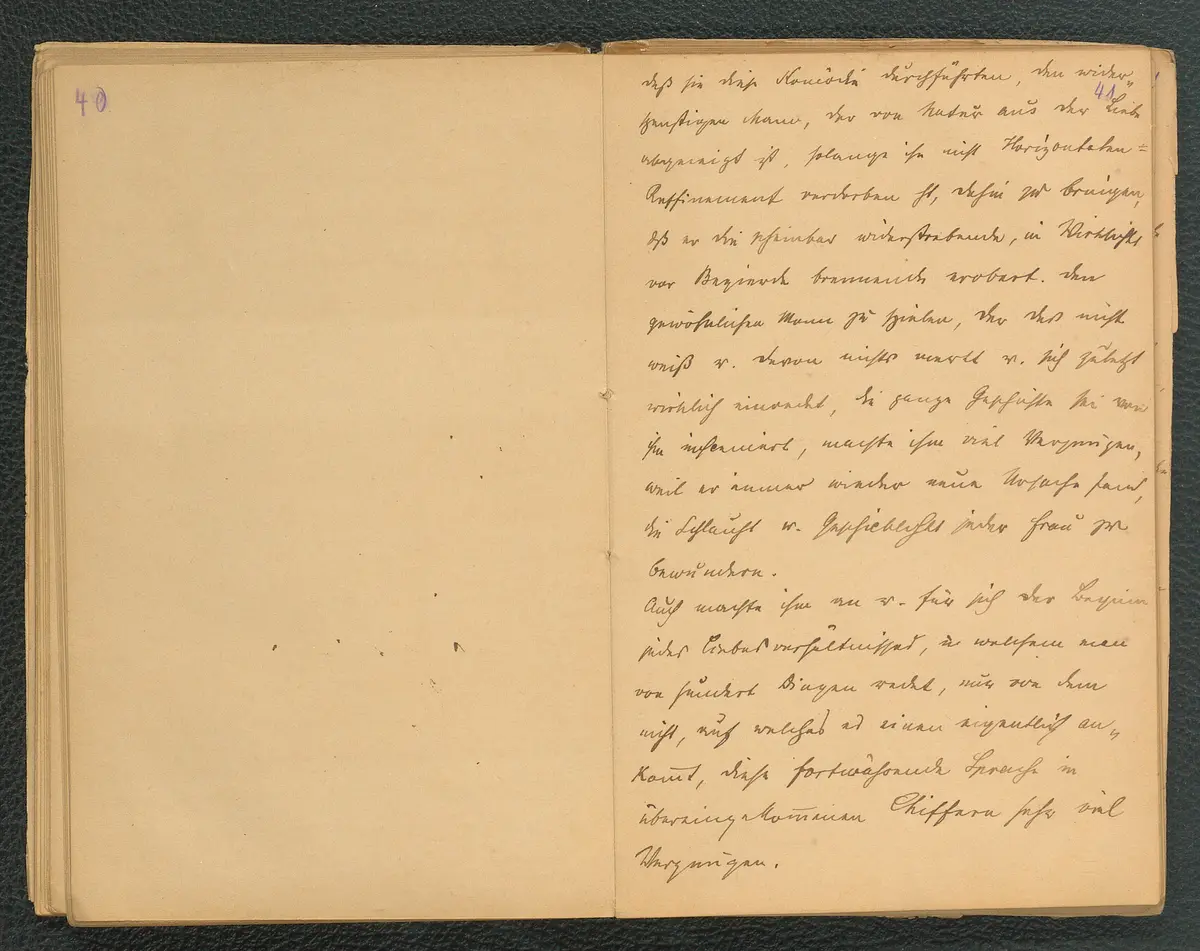 40
41
daß sie diese Komödie durchführten, den wider„
spenstigen Mann, der von Natur aus der Liebe
abgeneigt ist, solange ihn nicht Horizontalen=
Raffinement verdorben ht, dahin zu bringen,
dß er die scheinbar widerstrebende, in Wirklichkt
vor Begierde brennende erobert. Den
gewöhnlichen Mann zu spielen, der das nicht
weiß u. davon nichts merkt u. sich zuletzt
wirklich einredet, die ganze Geschichte sei von
ihm insceniert, machte ihm viel Vergnügen,
weil er immer wieder neue Ursache fand,
die Schlauht u. Geschicklichkt jeder Frau zu
bewundern.
Auch machte ihm an u. für sich der Beginn
jedes Liebesverhältnisses, in welchem man
von hundert Dingen redet, nur von dem
nicht, auf welches es einen eigentlich an„
kom̅t, diese fortwährende Sprache in
übereingekom̅enen Chiffern sehr viel
Vergnügen.